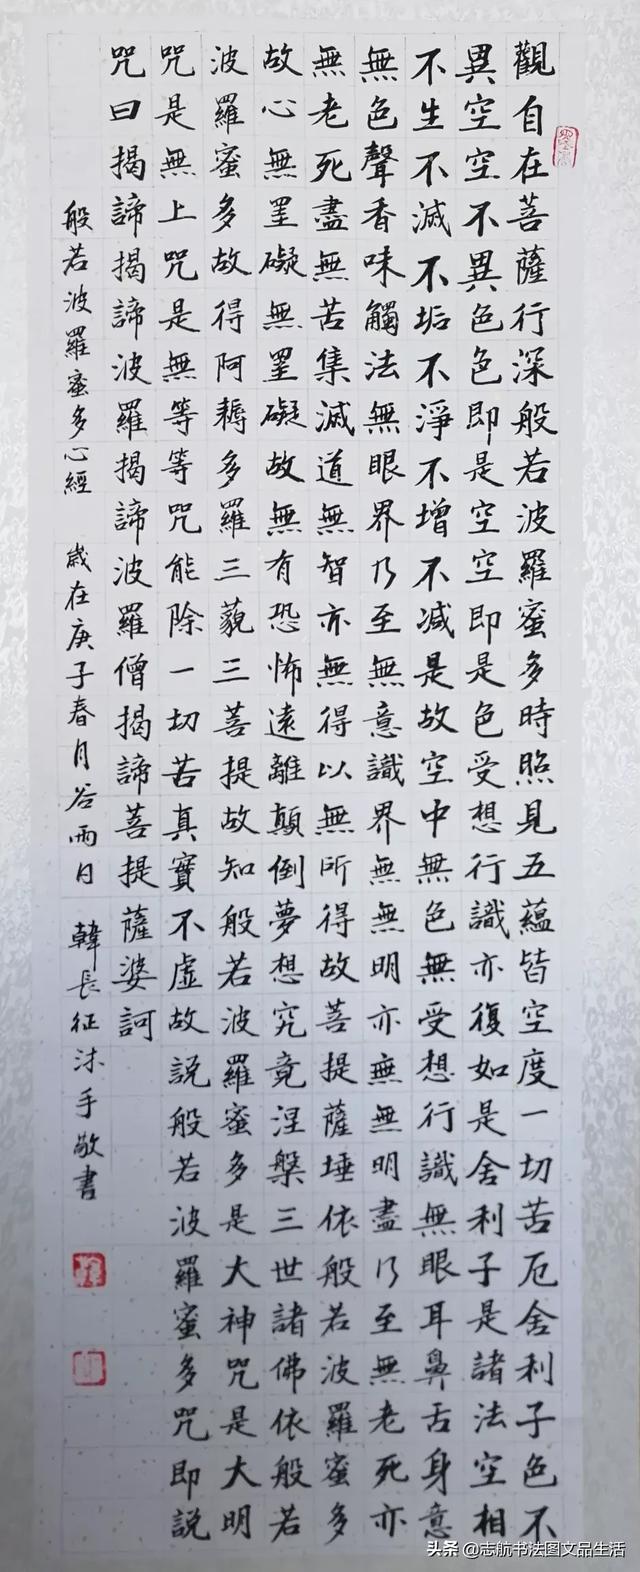 觀自在菩薩行深般若波羅蜜多時照見五蘊皆空度一切苦厄舍利子色不
異空空不異色色即是空空即是色受想行識亦復如是舍利子是諸法空相
不生不滅不垢不淨不增不減是故空中無色無受想行識無眼耳鼻舌身意
無色聲香味觸法無眼界乃至無意識界無無明亦無無明盡乃至無老死亦
無老死盡無苦集滅道無智亦無得以無所得故菩提薩埵依般若波羅蜜多
故心無罣礙無罣礙故無有恐怖遠離顛倒夢想究竟涅槃三世諸佛依般若
波羅蜜多故得阿耨多羅三藐三菩提故知般若波羅蜜多是大神咒是大明
咒是無上咒是無等等咒能除一切苦真實不虛故説般若波羅蜜多咒即説
咒曰揭諦揭諦波羅揭諦波羅僧揭諦菩提薩婆訶
般若波羅蜜多心經 歲在庚子春月谷雨日 韓長征沐手敬書
头条 @志航书法图文品生活